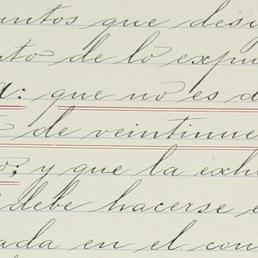 puntos que desi
nto de lo expu
a: que no es d
de veintinue
o; y que la exh
debe hacerse e
ada en el con